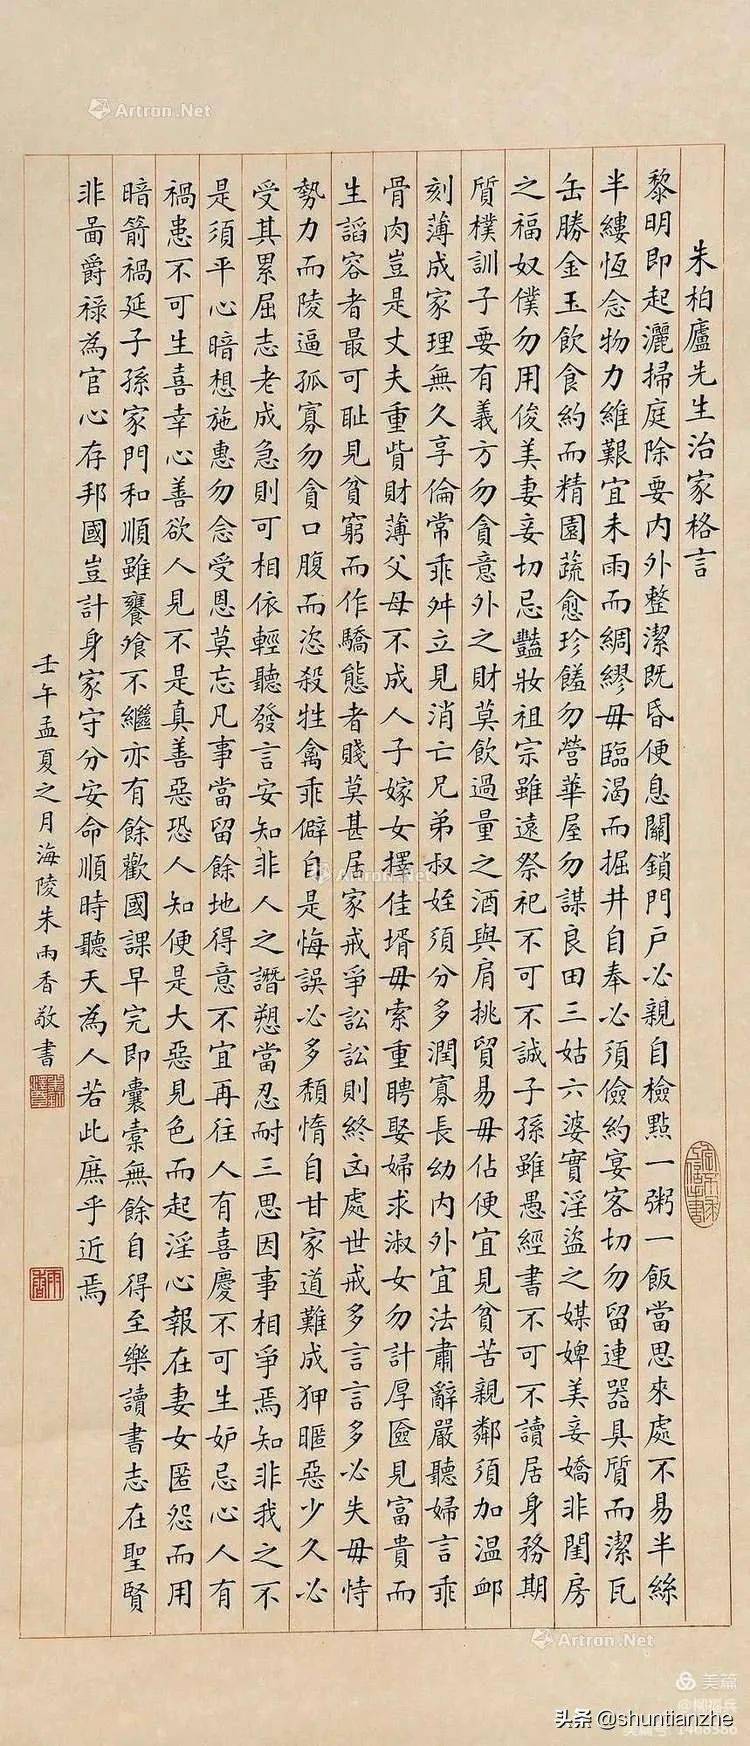 朱柏廬先生治家格言
黎明即起灑掃庭除要內外整潔既昏便息關鎖門戶必親自檢點一粥一飯當思來處不易半絲
半縷恆念物力維艱宜未雨而綢繆毋臨渴而掘井自奉必須儉約宴客切勿留連器具質而潔瓦
缶勝金玉飲食約而精園蔬愈珍饈勿營華屋勿謀良田三姑六婆實淫盜之媒婢美妾嬌非閨房
之福奴僕勿用俊美妻妾切忌豔妝祖宗雖遠祭祀不可不誠子孫雖愚經書不可不讀居身務期
質樸訓子要有義方勿貪意外之財莫飲過量之酒與肩挑貿易毋佔便宜見貧苦親鄰須加溫卹
刻薄成家理無久享倫常乖舛立見消亡兄弟叔姪須分多潤寡長幼內外宜法肅辭嚴聽婦言乖
骨肉豈是丈夫重貲財薄父母不成人子嫁女擇佳壻毋索重聘娶婦求淑女勿計厚奩見富貴而
生諂容者最可耻見貧窮而作驕態者賤莫甚居家戒爭訟訟則終凶處世戒多言言多必失毋恃
勢力而陵逼孤寡勿貪口腹而恣殺牲禽乖僻自是悔誤必多頹惰自甘家道難成狎暱惡少久必
受其累屈志老成急則可相依輕聽發言安知非人之譖愬當忍耐三思因事相爭焉知非我之不
是須平心暗想施惠勿念受恩莫忘凡事當留餘地得意不宜再往人有喜慶不可生妒忌心人有
禍患不可生喜幸心善欲人見不是真善惡恐人知便是大惡見色而起淫心報在妻女匿怨而用
暗箭禍延子孫家門和順雖饔飧不繼亦有餘歡國課早完即囊橐無餘自得至樂讀書志在聖賢
非啚爵祿為官心存邦國豈計身家守分安命順時聽天為人若此庶乎近焉
壬午孟夏之月海陵朱雨香敬書
Artron.Net
Artron.Net
Artron.Net
美篇
头条 @shuntianzhe